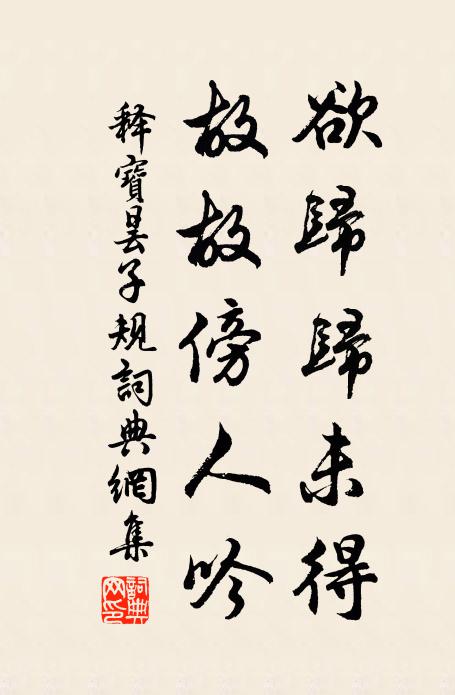 欲歸歸未得
故故傍人吟
釋寶曇子規詞典網集
詞典網印